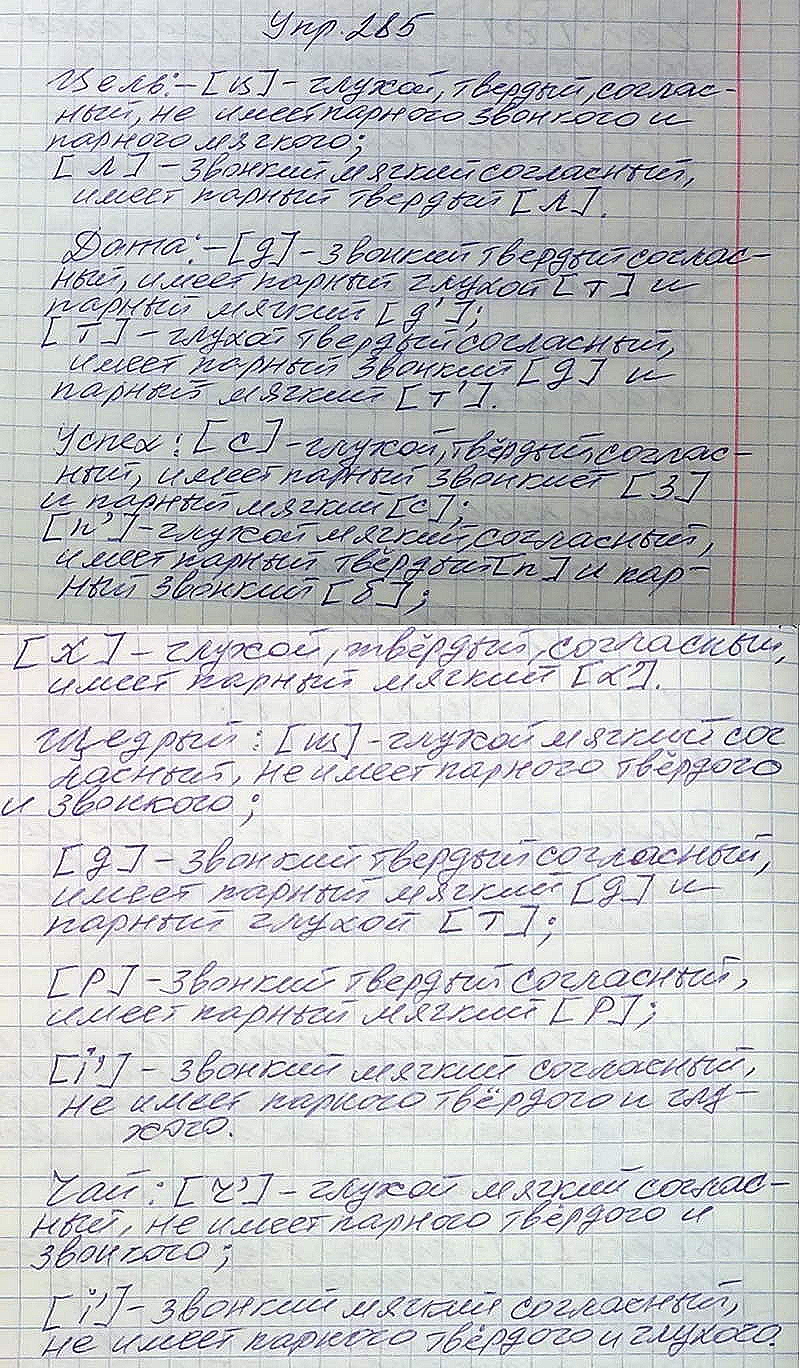 Упр. 285
Цель: – [ц] – глухой, твердый, соглас-
ный, не имеет парного звонкого и
парного мягкого;
[л] – звонкий мягкий согласный,
имеет парный твердый [л].
Дата: – [д] – звонкий твердый соглас-
ный, имеет парный глухой [т] и
парный мягкий [д'];
[т] – глухой твердый согласный,
имеет парный звонкий [д] и
парный мягкий [т'].
Успех: [с] – глухой, твёрдый, соглас-
ный, имеет парный звонкиет [з]
и парный мягкий [с];
[п'] – глухой мягкий, согласный,
имеет парный твёрдый [п] и пар-
ный звонкий [б];
[х] – глухой, твёрдый, согласный,
имеет парный мягкий [х'].
Щедрый: [щ] – глухой мягкий сог
ласный, не имеет парного твёрдого
и звонкого;
[д] – звонкий твердый согласный,
имеет парный мягкий [д] и
парный глухой [т];
[р] – звонкий твердый согласный,
имеет парный мягкий [р];
[й'] – звонкий мягкий согласный,
не имеет парного твёрдого и глу-
хого.
Чай: [ч'] – глухой мягкий соглас-
ный, не имеет парного твёрдого и
звонкого;
[й'] – звонкий мягкий согласный,
не имеет парного твёрдого и глухого.